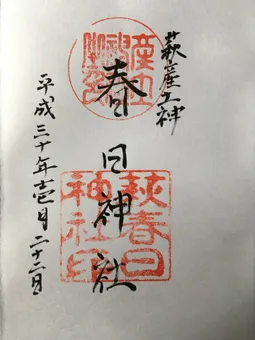 萩産土神
春日神社
平成三十年壱月二十二日
萩春日
神社印